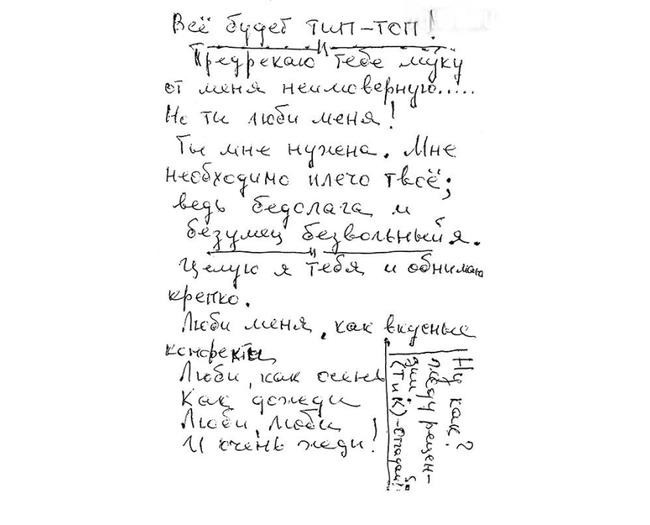 Всё будет тип-топ!
Предрекаю тебе муку
от меня неимоверную.....
Но ты люби меня!
Ты мне нужена. Мне
необходимо плечо твоё;
ведь бедолага и
безумец безвольный я.
Целую я тебя и обнимаю
крепко.
Люби меня, как вкусные
конфекты
Люби, как осень
Как дожди
Люби, люби
И очень жди!
Ну как?
Жду рецен-
зии
(Тик)-Отгадай!